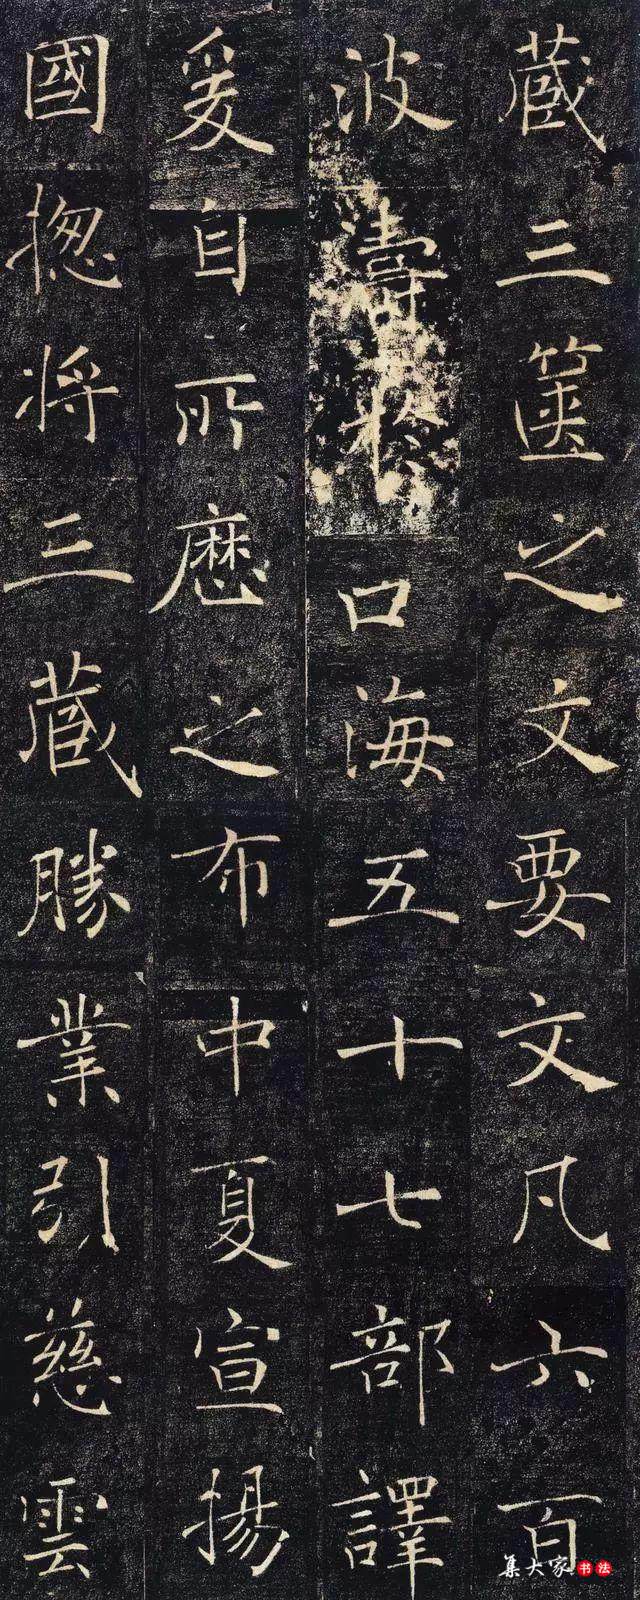 藏三篋之文
波濤於口海
爰自所歷之
國揔將三藏
要文凡六百
五十七部譯
布中夏宣揚
勝業引慈雲
集大家书法